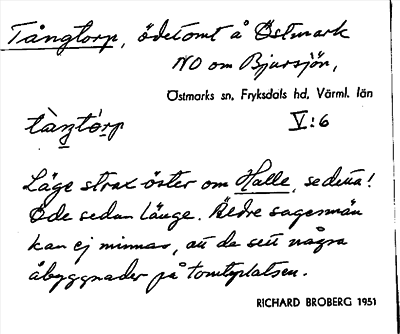 Tångtorp, ödetomt å Östmark
NO om Bjursjön,
Östmarks sn, Fryksdals hd, Värml. län
tàn̠tór̠p V:6
Läge strax öster om Halle, se detta!
Öde sedan länge. Äldre sagesmän
kan ej minnas, att de sett några
åbyggnader på tomtplatsen.
RICHARD BROBERG 1951